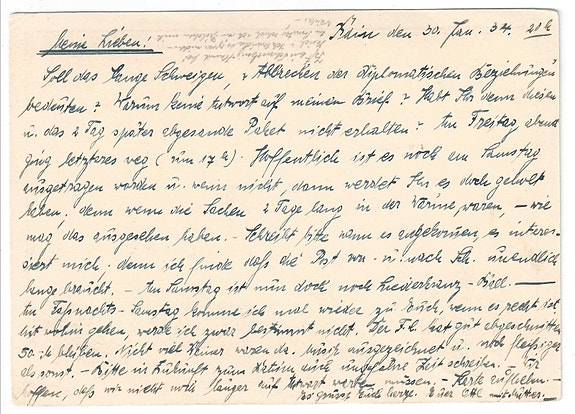 Meine Lieben! Rain den 30. Jan. 34. 20 h
Soll das lange Schweigen, Abbrechen der diplomatischen Beziehungen
bedeuten? Warum keine Antwort auf meinen Brief? Habt Ihr denn diesen
u. das 2 Tag später abgesande Paket nicht erhalten? Am Freitag abend
ging letzteres weg (um 17 h). Hoffentlich ist es noch am Samstag
ausgetragen worden u. wenn nicht, dann werdet Ihr es doch geholt
haben, denn wenn die Sachen 2 Tage lang in der Wärme waren, – wie
mag das ausgesehen haben. – Schreibt bitte wann es angekommen, es interes-
siert mich; denn ich finde daß die Post von u. nach Sch. unendlich
lange braucht. – Am Samstag ist nun doch noch Liederkranz-
Am Faßnachts-Samstag komme ich mal wieder zu Euch, wenn es recht ist
mit gehen, werde ich zwar bestimmt nicht. Der hat gut abgeschnitten
50. bleiben. Nicht viel waren da. Musik ausgezeichnet u. noch fleißiger
als sonst. – Bitte in Zukunft zum Zeit schreiben. – Wir
hoffen, daß wir nicht noch länger auf Antwort warten müssen. – Karte
Es grüsst Euch herzl. Euer Otto mit Mutter.